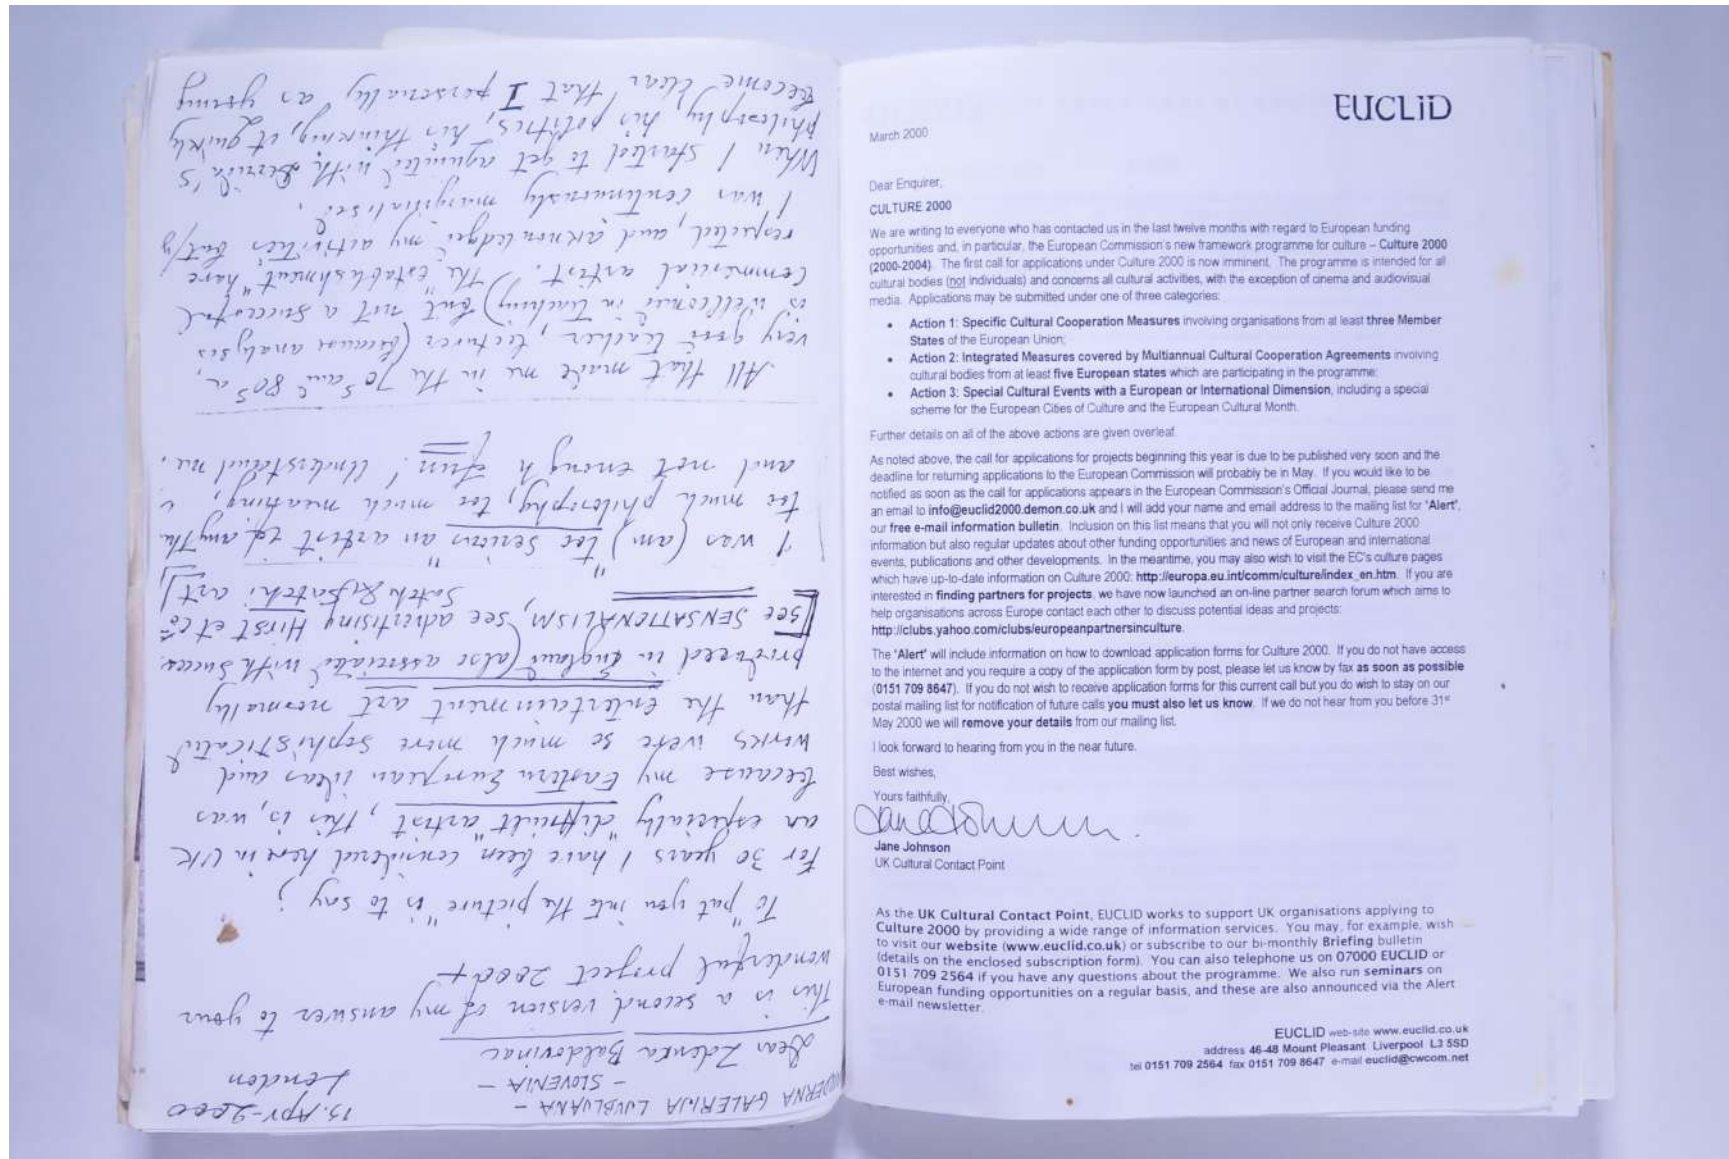 MODERNA GALERIJA LJUBLJANA –
– SLOVENIA –
15. Apr. 2000
London
Dear Zdenka Badovinac
This is a second version of my answer to your
wonderful project 2000+
To "put you into the picture" is to say:
for 30 years I have been considered here in UK
an especially "difficult" artist, this is, was
because my Eastern European ideas and
works were so much more sophisticated
than the entertainment art normally
produced in England (also associated with success
see SENSATIONALISM, see advertising Hirst et co
Satch & Satchi art
I was (am) "too serious" an artist of anything
too much philosophy, too much meaning,
and not enough fun! Understand me.
All that made me in the 70s and 80s a,
very good teacher, lecturer (because analysis
is wellcome in teaching) but not a succesful
commercial artist. The "establishment" have
respected, and aknowledged my activities but
I was continuously marginalised.
When I started to get aquinted with Derrida's
philosophy, his politics, his thinking, it quickly
become clear that I personally as young
EUCLiD
March 2000
Dear Enquirer,
CULTURE 2000
We are writing to everyone who has contacted us in the last twelve months with regard to European funding
opportunities and, in particular, the European Commission's new framework programme for culture – Culture 2000
(2000-2004). The first call for applications under Culture 2000 is now imminent. The programme is intended for all
cultural bodies (not individuals) and concerns all cultural activities, with the exception of cinema and audiovisual
media. Applications may be submitted under one of three categories:
• Action 1: Specific Cultural Cooperation Measures involving organisations from at least three Member
States of the European Union;
• Action 2: Integrated Measures covered by Multiannual Cultural Cooperation Agreements involving
cultural bodies from at least five European states which are participating in the programme;
• Action 3: Special Cultural Events with a European or International Dimension, including a special
scheme for the European Cities of Culture and the European Cultural Month.
Further details on all of the above actions are given overleaf.
As noted above, the call for applications for projects beginning this year is due to be published very soon and the
deadline for returning applications to the European Commission will probably be in May. If you would like to be
notified as soon as the call for applications appears in the European Commission's Official Journal, please send me
an email to info@euclid2000.demon.co.uk and I will add your name and email address to the mailing list for 'Alert',
our free e-mail information bulletin. Inclusion on this list means that you will not only receive Culture 2000
information but also regular updates about other funding opportunities and news of European and international
events, publications and other developments. In the meantime, you may also wish to visit the EC's culture pages
which have up-to-date information on Culture 2000: http://europa.eu.int/comm/culture/index_en.htm. If you are
interested in finding partners for projects, we have now launched an on-line partner search forum which aims to
help organisations across Europe contact each other to discuss potential ideas and projects:
http://clubs.yahoo.com/clubs/europeanpartnersinculture.
The 'Alert' will include information on how to download application forms for Culture 2000. If you do not have access
to the internet and you require a copy of the application form by post, please let us know by fax as soon as possible
(0151 709 8647). If you do not wish to receive application forms for this current call but you do wish to stay on our
postal mailing list for notification of future calls you must also let us know. If we do not hear from you before 31st
May 2000 we will remove your details from our mailing list.
I look forward to hearing from you in the near future.
Best wishes,
Yours faithfully,
Jane Johnson.
Jane Johnson
UK Cultural Contact Point
As the UK Cultural Contact Point, EUCLID works to support UK organisations applying to
Culture 2000 by providing a wide range of information services. You may, for example, wish
to visit our website (www.euclid.co.uk) or subscribe to our bi-monthly Briefing bulletin
(details on the enclosed subscription form). You can also telephone us on 07000 EUCLID or
0151 709 2564 if you have any questions about the programme. We also run seminars on
European funding opportunities on a regular basis, and these are also announced via the Alert
e-mail newsletter.
EUCLID web-site www.euclid.co.uk
address 46-48 Mount Pleasant Liverpool L3 5SD
tel 0151 709 2564 fax 0151 709 8647 e-mail euclid@cwcom.net